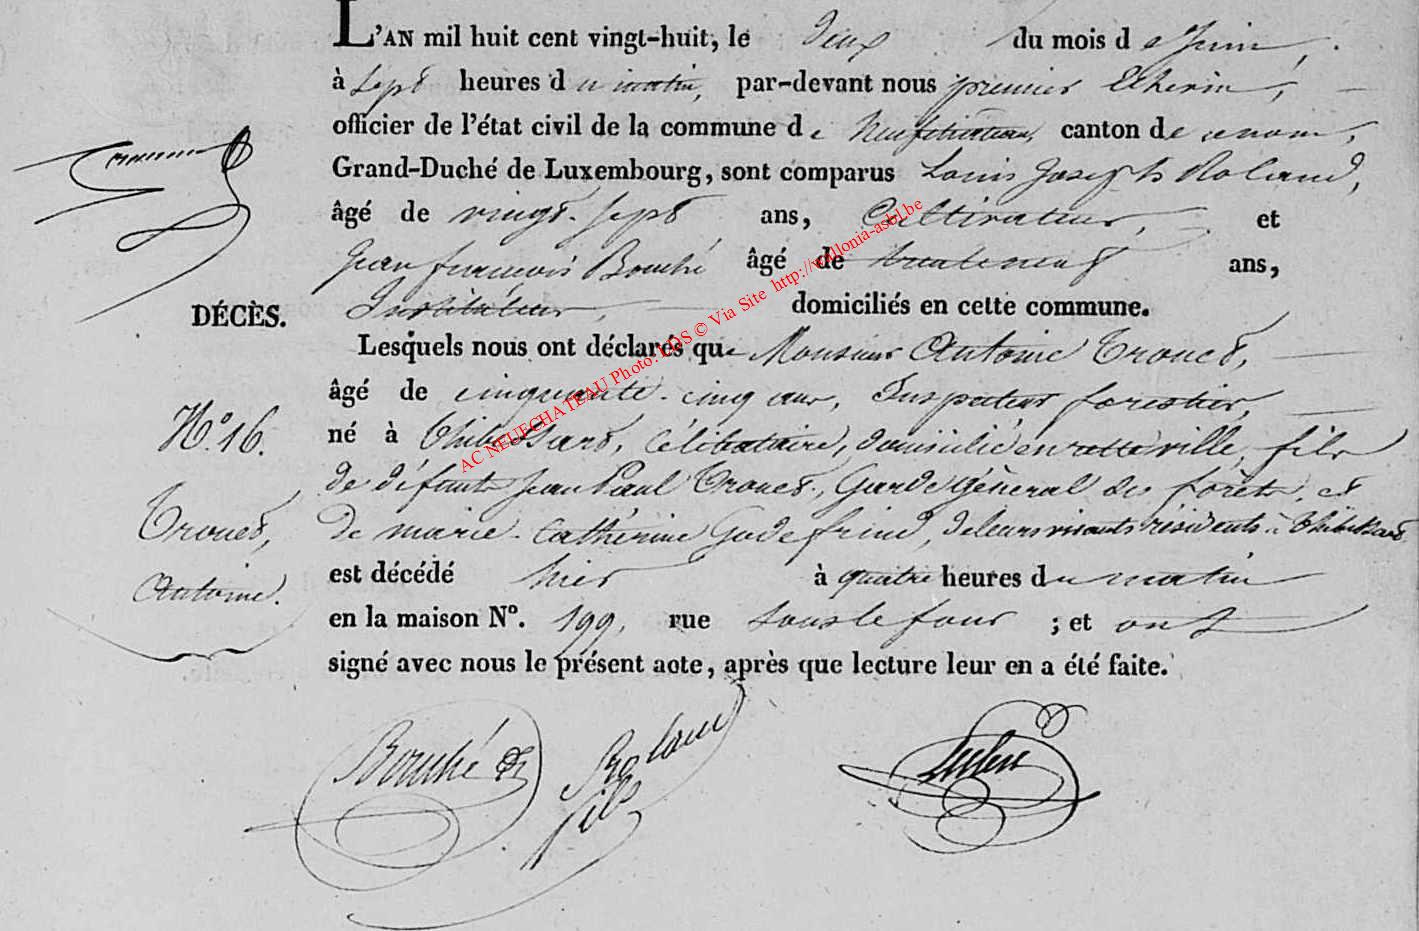 L'AN mil huit cent vingt-huit, le deux du mois de Juin,
à sept heures du matin, par-devant nous premier Echevin,
officier de l'état civil de la commune de Neufchateau, canton de ce nom,
Grand-Duché de Luxembourg, sont comparus Louis Joseph Roland,
âgé de vingt-sept ans, Cultivateur, et
Jean françois Bouché âgé de trente neuf ans,
Instituteur, domiciliés en cette commune.
DÉCÈS.
Lesquels nous ont déclarés que Monsieur Antoine Trouet,
âgé de cinquante-cinq ans, Inspecteur forestier,
N.º 16.
né à Thibessart, célibataire, domicilié en cette ville, fils
de défunts Jean Paul Trouet, Garde Général des forêts, et
Trouet,
Antoine.
de marie-Catherine Godefrind, de leurs vivants résidents à Thibessart
est décédé hier à quatre heures du matin
en la maison Nº. 199, rue sous le four ; et ont
signé avec nous le présent acte, après que lecture leur en a été faite.
Bouché
Roland
fils
AC NEUFCHATEAU Photo: LDS © Via Site http://wallonia-asbl.be